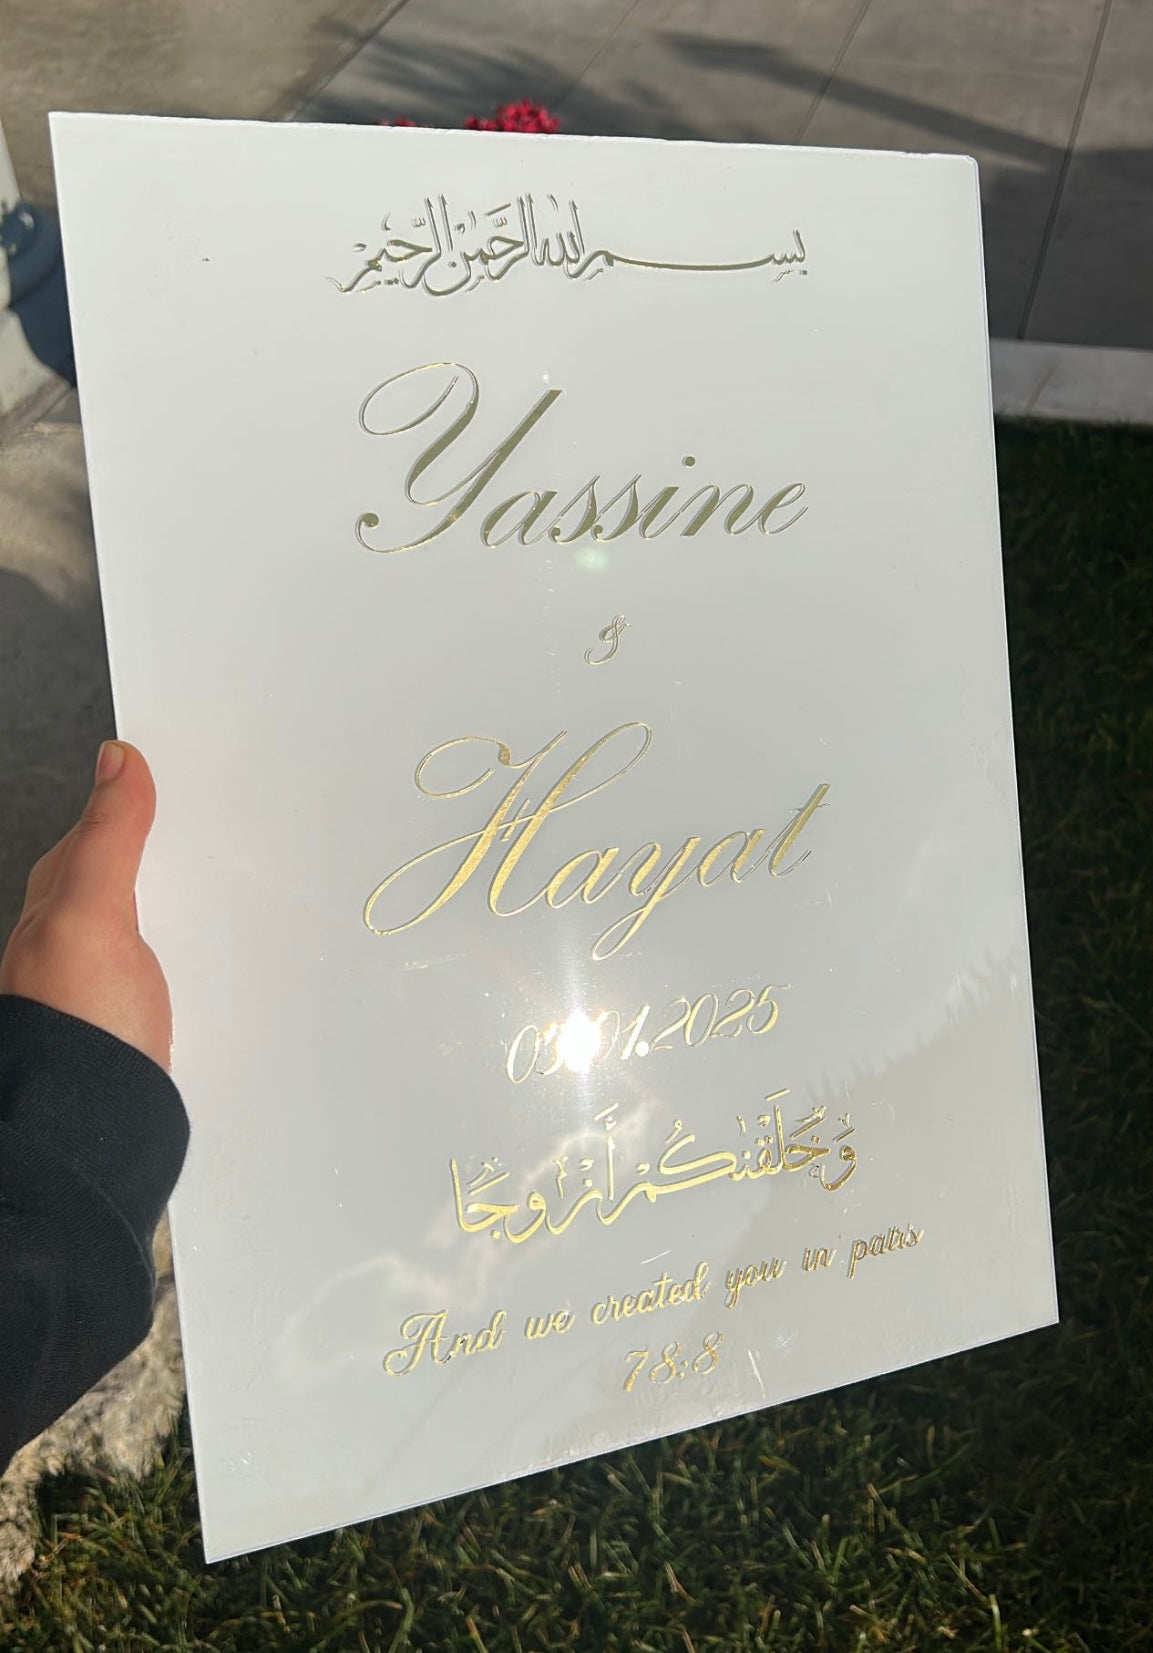 بسم الله الرحمن الرحيم
Yassine
&
Hayat
01.2025
وَخَلَقْنَٰكُمْ أَزْوَٰجًا
And we created you in pairs
78:8